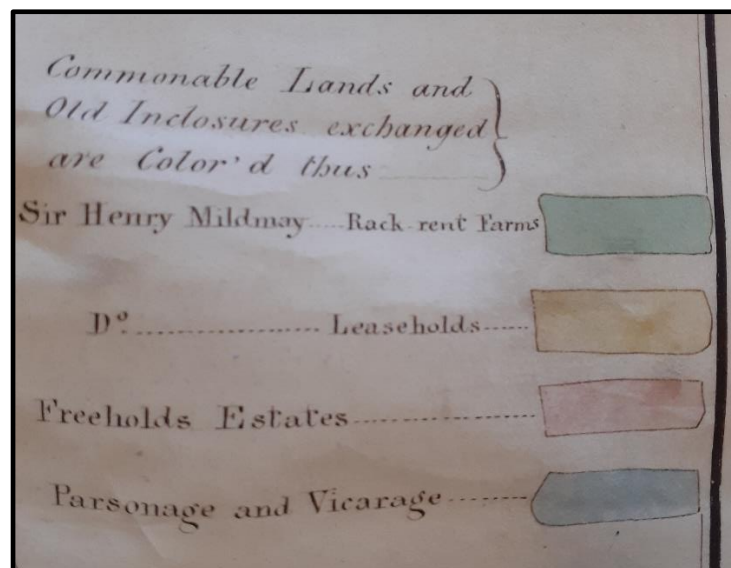 Commonable Lands and
Old Inclosures exchanged
are Color'd thus
Sir Henry Mildmay Rack rent Farms
Do Leaseholds
Freeholds Estates
Parsonage and Vicarage